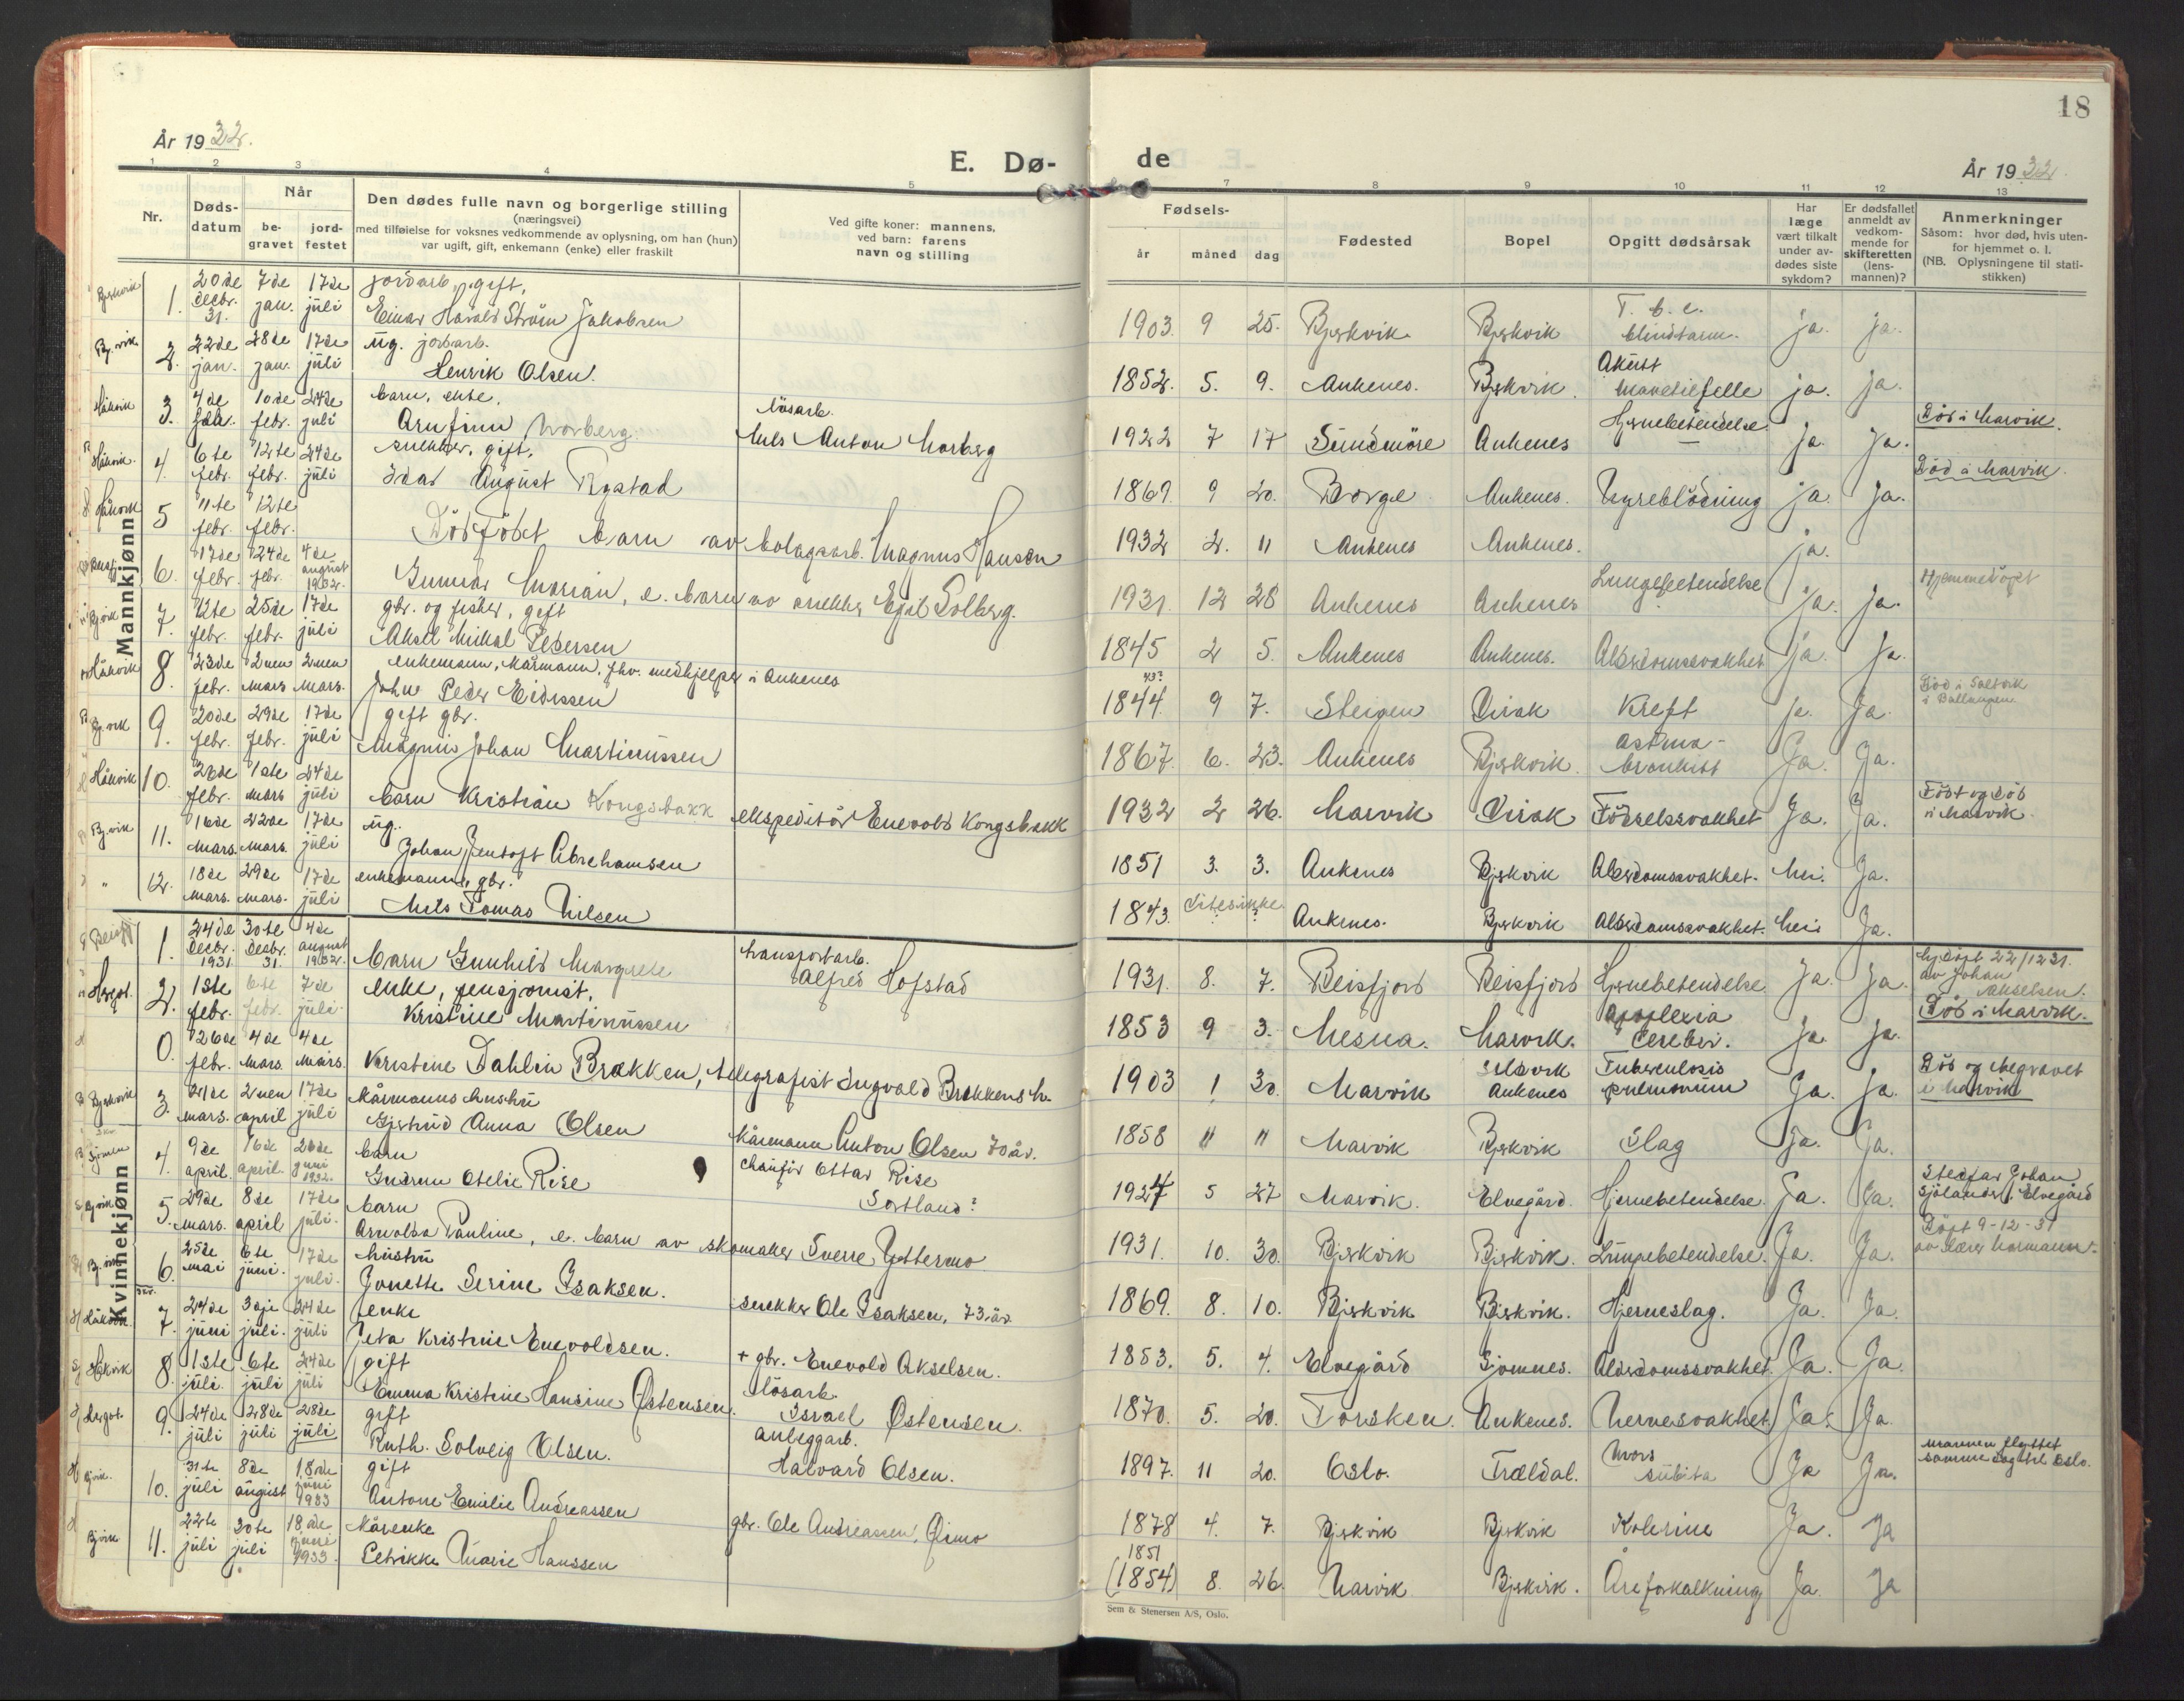 18
År 1932.
E. Dø-
de
År 1932
1 2 3 4 5 7 8 9 10 11 12 13
Nr.
Døds-
datum
Når
be-
gravet
jord-
festet
Den dødes fulle navn og borgerlige stilling
(næringsvei)
med tilføielse for voksnes vedkommende av oplysning, om han (hun)
var ugift, gift, enkemann (enke) eller fraskilt
Ved gifte koner: mannens,
ved barn: farens
navn og stilling
Fødsels-
år måned dag
Fødested
Bopel
Opgitt dødsårsak
Har
læge
vært tilkalt
under av-
dødes siste
sykdom?
Er dødsfallet
anmeldt av
vedkom-
mende for
skifteretten
(lens-
mannen)?
Anmerkninger
Såsom: hvor død, hvis uten-
for hjemmet o. l.
(NB. Oplysningene til stati-
stikken)
Mannkjønn
Bjerkvik 1. 20de decbr. 31. 7de jan. 17de juli jordarb., gift,
Einar Harald Strøm Jakobsen
1903. 9 25. Bjerkvik Bjerkvik T. b. c. blindtarm. ja. ja.
Bj.vik 2. 22de jan. 28de jan. 17de juli ug. jordarb.
Henrik Olsen.
1852. 5. 9. Ankenes. Bjerkvik. Akutt mavetilfelle ja. ja.
Håkvik 3. 4de febr. 10de febr. 24de juli barn, ekte.
Arnfinn Norberg
løsarb.
Nils Anton Norberg
1922 7 17 Sundmöre Ankenes Hjernebetendelse ja. Ja. Död i Narvik.
Håkvik. 4. 6te febr. 12te febr. 24de juli snekker, gift,
Idar August Rystad
1869. 9 20. Borge Ankenes. Nyreblödning ja. Ja. Död i Narvik.
Håkvik 5 11te febr. 12te febr.
Dödfödt barn av bolagsarb. Magnus Hansen
1932 2. 11 Ankenes Ankenes. ja.
Beisfj. 6. 17de febr. 24de febr. 4de august 1932.
Gunnar Marian, e. barn av snekker Egil Solberg.
1931. 12 28 Ankenes Ankenes Lungebetendelse ja. ja. Hjemmedøpt
Bj.vik 7. 12te febr. 25de febr. 17de juli gbr. og fisker, gift
Aksel Mikal Pedersen
1845 2 5. Ankenes Ankenes. Alderdomssvakhet ja. Ja.
Håkvik 8. 23de febr. 2nen mars 2nen mars. enkemann, kårmann, fhv. medhjelper i Ankenes
Johan Peder Eidissen
43?
1844 9 7. Steigen Virak Kreft ja. Ja. Död i Saltvik
i Ballangen
Bj.vik 9. 20de febr. 29de febr. 17de juli gift gbr.
Magnus Johan Martinussen
1867. 6. 23. Ankenes Bjerkvik. astma-bronkitt Ja. Ja.
Håkvik 10. 26de febr. 1ste mars 24de juli
barn Kristian Kongsbakk ekspeditør Enevold Kongsbakk
1932 2 26. Narvik Virak Födselssvakhet Ja. Ja. Födt og död
i Narvik.
Bj.vik 11. 16de mars. 22de mars. 17de juli ug.
Johan Jentoft Abrahamsen
1851 3. 3. Ankenes Bjerkvik Alderdomssvakhet. Nei. Ja.
" 12. 18de mars. 29de mars. 17de juli enkemann, gbr.
Nils Tomas Nilsen
1843. Vites ikke Ankenes. Bjerkvik Alderdomssvakhet. Nei Ja.
Kvinnekjønn
Beisfj 1. 24de decbr. 1931. 30te decbr. 31. 4de august 1932.
barn Gunhild Margrete
transportarb.
Alfred Hofstad
1931. 8. 7. Beisfjord Beisfjord Hjernebetendelse Ja. Ja. hj.döpt 22/12 31.
av Johan
Akselsen.
Hergot. 2. 1ste febr. 6te febr. 7de juli enke, pensjonist,
Kristine Martinussen
1853 9 3. Nesna. Narvik. apoplexia cerebri. ja. ja. Död i Narvik.
0. 26de febr. 4de mars. 4de mars.
Kristine Dahlin Brekken, telegrafist Ingvald Brekkens h.
1903 1 30. Narvik Ankenes Tuberculosis pulmonum Ja. Ja. Död og begravet
i Narvik
Bjerkvik 3. 21de mars. 2nen april 17de juli kårmanns hustru
Gjertrud Anna Olsen
kårmann Anton Olsen 70 år.
1858 11 11 Narvik Bjerkvik Slag Ja. Ja.
Sjomen 4. 9de april. 16de april. 26de juni 1932. barn
Gudrun Otelie Rise
chauför Ottar Rise
Sortland?
1927 5 27 Narvik. Elvegård. Hjernebetendelse. Ja. Ja. Stedfar Johan
Sjölander, Elvegård
Bj.vik 5. 29de mars. 8de april 17de juli. barn
Arnolda Pauline, e. barn av skomaker Sverre Yttermo
1931. 10. 30. Bjerkvik Bjerkvik. Lungebetendelse. Ja. Ja. Döpt 9-12-31
av Normann.
Bj.vik 6. 25de mai 6te juni. 17de juli. hustru
Jonette Serine Isaksen.
snekker Ole Isaksen, 73 år.
1869. 8. 10. Bjerkvik Bjerkvik. Hjerneslag. Ja. Ja.
Håkvik. 7. 24de juni 3dje juli. 24de juli enke
Jeta Kristine Enevoldsen.
+ gbr. Enevold Akselsen.
1853. 5. 4. Elvegård Sjomnes. Alderdomssvakhet. Ja. Ja.
Håkvik 8. 1ste juli. 6te juli 24de juli gift
Emma Kristine Hansine Østensen.
løsarb.
Israel Østensen.
1870. 5. 20. Torsken. Ankenes. Nervesvakhet Ja. Ja.
Hergot. 9. 24de juli 28de juli 28de juli gift
Ruth Solveig Olsen.
anleggarb.
Halvard Olsen.
1897. 11 20. Oslo. Trældal. Mors subita Ja Ja. Mannen flyttet
samme dag til Oslo.
Bj.vik. 10. 31te juli 8de august 18.de juni 1933 gift
Antone Emilie Andreassen
gbr. Ole Andreassen,
1878 4. 7. Bjerkvik Bjerkvik Kolerine Ja. Ja
Bjvik 11. 22te juli 30te juli 18.de juni 1933. kårenke
Petrikke Marie Hanssen
1851
(1854) 8. 26. Narvik Bjerkvik. Åreforkalkning Ja. Ja
Sem & Stenersen A/S, Oslo.